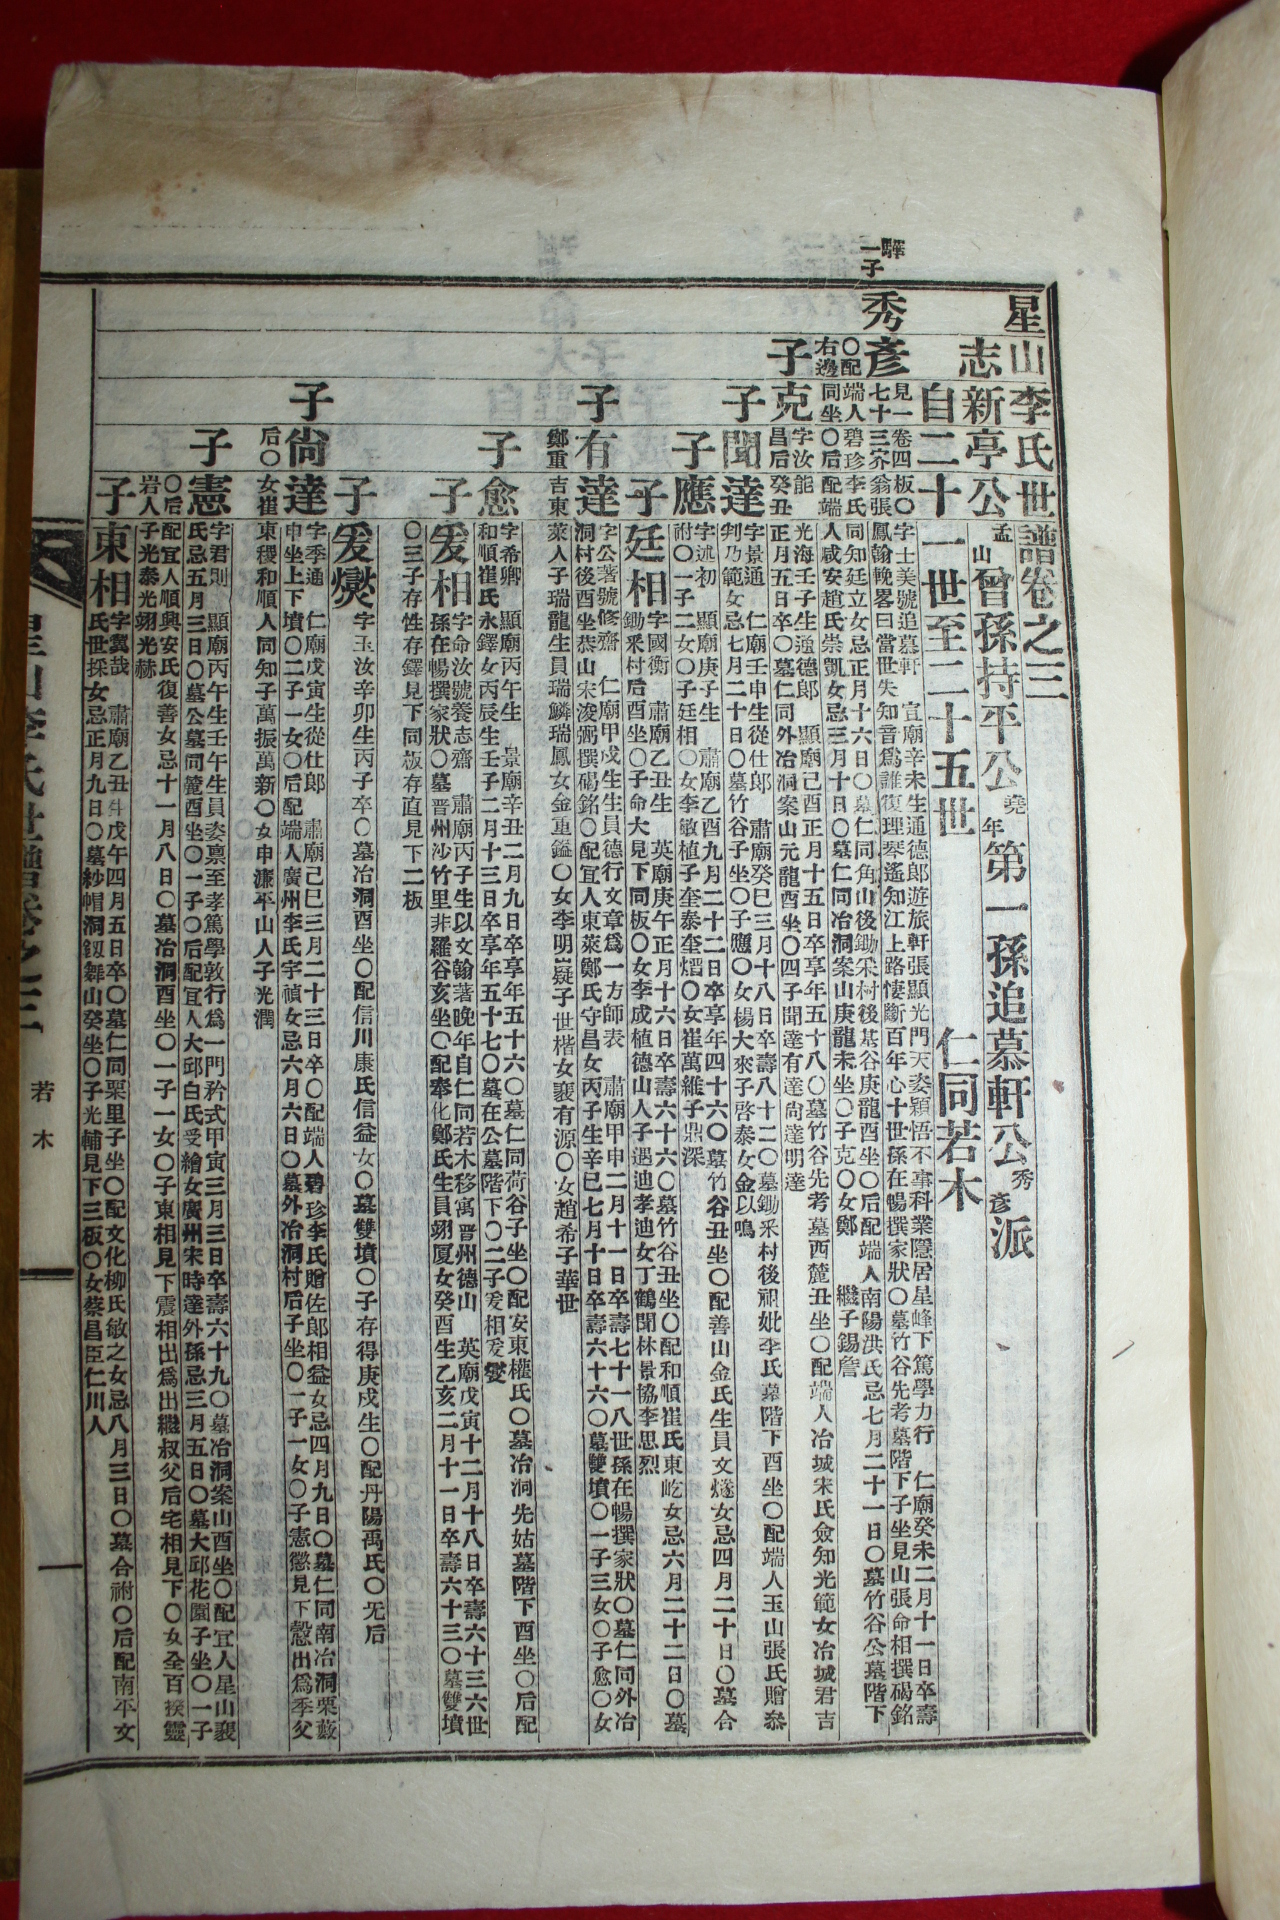 星山李氏世譜卷之三
志新亭公孟山曾孫持平公堯年第一孫追慕軒公秀彥派
自二十一世至二十五世 仁同若木
驊一子
秀彥
見一卷四板〇
七十三斧翁張
端人碧珍李氏
同坐〇后配端
〇配
右邊
字士美號追慕軒 宣廟辛未生通德郎遊旅軒張顯光門天姿穎悟不事科業隱居星峰下篤學力行 仁廟癸未二月十一日卒壽
鳳翰輓畧曰當世失知音爲誰復理琴遙知江上路悽斷百年心十世孫在暢撰家狀〇墓竹谷先考墓階下子坐見山張命相撰碣銘
同知廷立女忌正月十六日〇墓仁同角山後鋤釆村後基谷庚龍酉坐〇后配端人南陽洪氏忌七月二十一日〇墓竹谷公墓階下
人咸安趙氏崇凱女忌三月十日〇墓仁同冶洞案山庚龍未坐〇子克〇女鄭 繼子錫詹
子克
字汝能
昌后癸丑
正月五日卒〇墓仁同外冶洞案山元龍酉坐〇四子聞達有達尙達明達
光海壬子生通德郎 顯廟己酉正月十五日卒享年五十八〇墓竹谷先考墓西麓丑坐〇配端人冶城宋氏僉知光範女冶城君吉
子聞達
字景通 仁廟壬申生從仕郎 肅廟癸巳三月十八日卒壽八十二〇墓鋤釆村後祖妣李氏墓階下酉坐〇配端人玉山張氏贈叅
判乃範女忌七月二十日〇墓竹谷子坐〇子應〇女楊大來子啓泰女金以鳴
子應
字述初 顯廟庚子生 肅廟乙酉九月二十二日卒享年四十六〇墓竹谷丑坐〇配善山金氏生員文燧女忌四月二十日〇墓合
附〇一子二女〇子廷相〇女李敏植子奎泰奎熠〇女崔萬維子鼎深
子廷相
字國衡 肅廟乙丑生 英廟庚午正月十六日卒壽六十六〇墓竹谷丑坐〇配和順崔氏東屹女忌六月二十二日〇墓
鋤釆村后酉坐〇子命大見下同板〇女李成植德山人子遇迪孝迪女丁鶴聞林景協李思烈
子有達
字公著號修齋 仁廟甲戌生生員德行文章爲一方師表 肅廟甲申二月十一日卒壽七十一八世孫在暢撰家狀〇墓仁同外冶
洞村後酉坐恭山宋浚弼撰碣銘〇配宜人東萊鄭氏守昌女丙子生辛巳七月十日卒壽六十六〇墓雙墳〇一子三女〇子愈〇女
鄭重吉東萊人子瑞龍生員瑞鱗瑞鳳女金重鎰〇女李明嶷子世楷女裵有源〇女趙希子華世
子愈
字希卿 顯廟丙午生 景廟辛丑二月九日卒享年五十六〇墓仁同荷谷子坐〇配安東權氏〇墓冶洞先姑墓階下酉坐〇后配
和順崔氏永鐸女丙辰生壬子二月十三日卒享年五十七〇墓在公墓階下〇二子爰相爰燮
子爰相
字命汝號養志齋 肅廟丙子生以文翰著晚年自仁同若木移寓晋州德山 英廟戊寅十二月十八日卒壽六十三六世
孫在暢撰家狀〇墓晋州沙竹里非羅谷亥坐〇配奉化鄭氏生員翊厦女癸酉生乙亥二月十一日卒壽六十三〇墓雙墳
〇三子存性存鐸見下同板存直見下二板
子爰燮
字玉汝辛卯生丙子卒〇墓冶洞酉坐〇配信川康氏信益女〇墓雙墳〇子存得庚戌生〇配丹陽禹氏〇无后
子尙達
字季通 仁廟戊寅生從仕郎 肅廟己巳三月二十三日卒〇配端人碧珍李氏贈佐郎相益女忌四月九日〇墓仁同南冶洞栗藪
申坐上下墳〇二子一女〇后配端人廣州李氏宇禎女忌六月六日〇墓外冶洞村后子坐〇一子一女〇子憲懲見下慤出爲季父
后〇女崔東稷和順人同知子萬振萬新〇女申濂平山人子光潤
子憲
字君則 顯廟丙午生壬午生員姿禀至孝篤學敦行爲一門矜式甲寅三月三日卒壽六十九〇墓冶洞案山酉坐〇配宜人星山裵
氏忌五月三日〇墓公墓同麓酉坐〇一子〇后配宜人大邱白氏受繪女廣州宋時達外孫忌三月五日〇墓大邱花園子坐〇一子
〇后配宜人順興安氏復善女忌十一月八日〇墓冶洞酉坐〇一子一女〇子東相見下震相出爲出繼叔父后宅相見下〇女全百揆靈
岩人子光泰光翊光赫
子東相
字冀哉 肅廟乙丑生戊午四月五日卒〇墓仁同栗里子坐〇配文化柳氏敏之女忌八月三日〇墓合祔〇后配南平文
氏世採女忌正月九日〇墓紗帽洞釼舞山癸坐〇子光輔見下三板〇女蔡昌臣仁川人
星山李氏世譜卷之三 若木 一